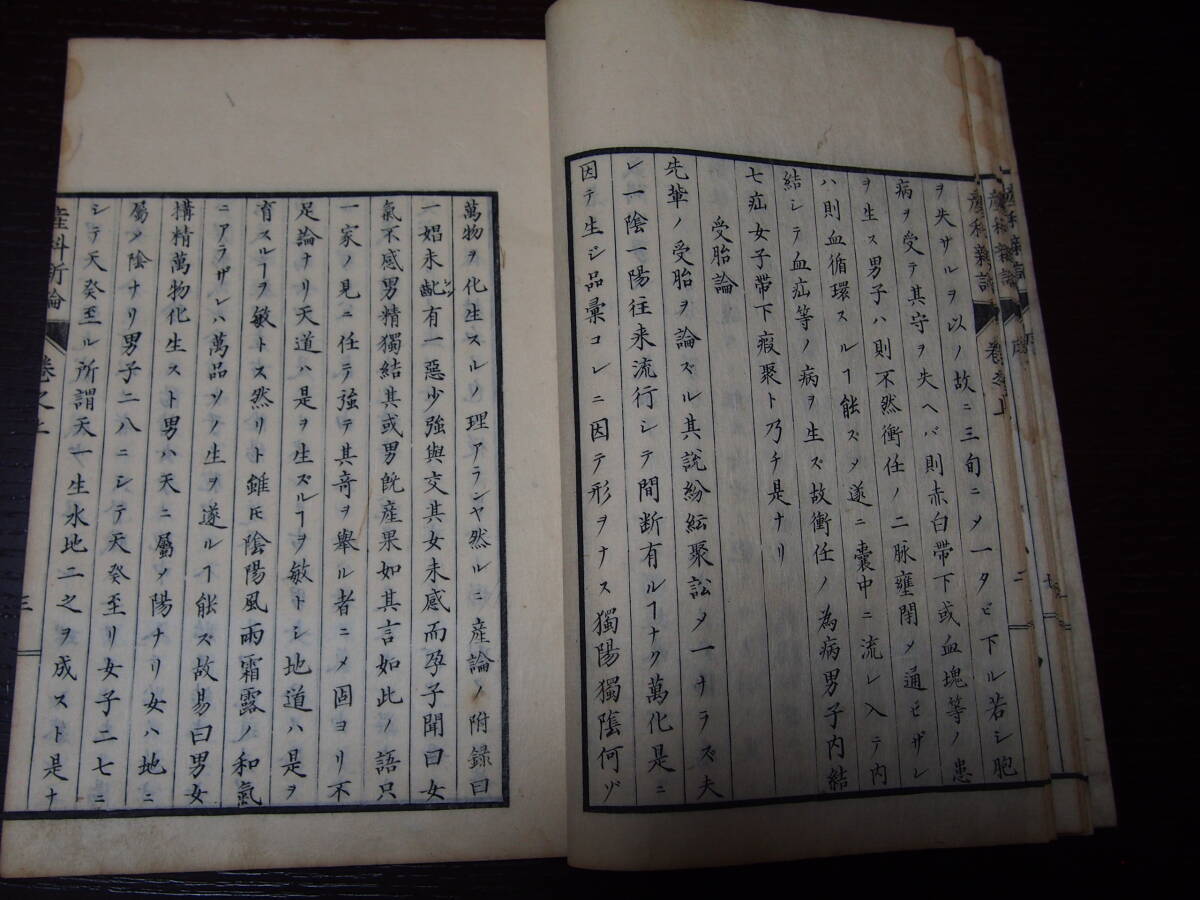 ヲ失サルヲ以ノ故ニ三旬ニメ一タビ下ル若シ胞
病ヲ受テ其守ヲ失ヘバ則赤白帶下或血塊等ノ患
ヲ生ス男子ハ則不然衝任ノ二脉壅閉メ通ビザレ
ハ則血循環スルヿ能ズメ遂ニ囊中ニ流レ入テ内
結シテ血疝等ノ病ヲ生ズ故衝任ノ為病男子内結
七疝女子帶下瘕聚ト乃チ是ナリ
受胎論
先輩ノ受胎ヲ論ズル其說紛紜聚訟メ一ナラズ夫
レ一陰一陽往来流行シテ間断有ルヿナク萬化是ニ
因テ生ジ品彙コレニ因テ形ヲナス獨陽獨陰何ゾ
萬物ヲ化生スルノ理アランヤ然ルニ産論ノ附録曰
一娼未齓有一惡少強與交其女未感而孕子聞曰女
氣不感男精獨結其或男旣産果如其言如此ノ語只
一家ノ見ニ任テ強テ其奇ヲ舉ル者ニメ固ヨリ不
足論ナリ天道ハ是ヲ生ズルヿヲ敏トシ地道ハ是ヲ
育スルヿヲ敏トス然リト雖𪜈陰陽風雨霜露ノ和氣
ニアラザレハ萬品ソノ生ヲ遂ルヿ能ズ故易曰男女
構精萬物化生スト男ハ天ニ屬メ陽ナリ女ハ地ニ
屬メ陰ナリ男子二八ニシテ天癸至リ女子二七ニ
シテ天癸至ル所謂天一生水地二之ヲ成スト是ナ
産科新論
卷之上
三